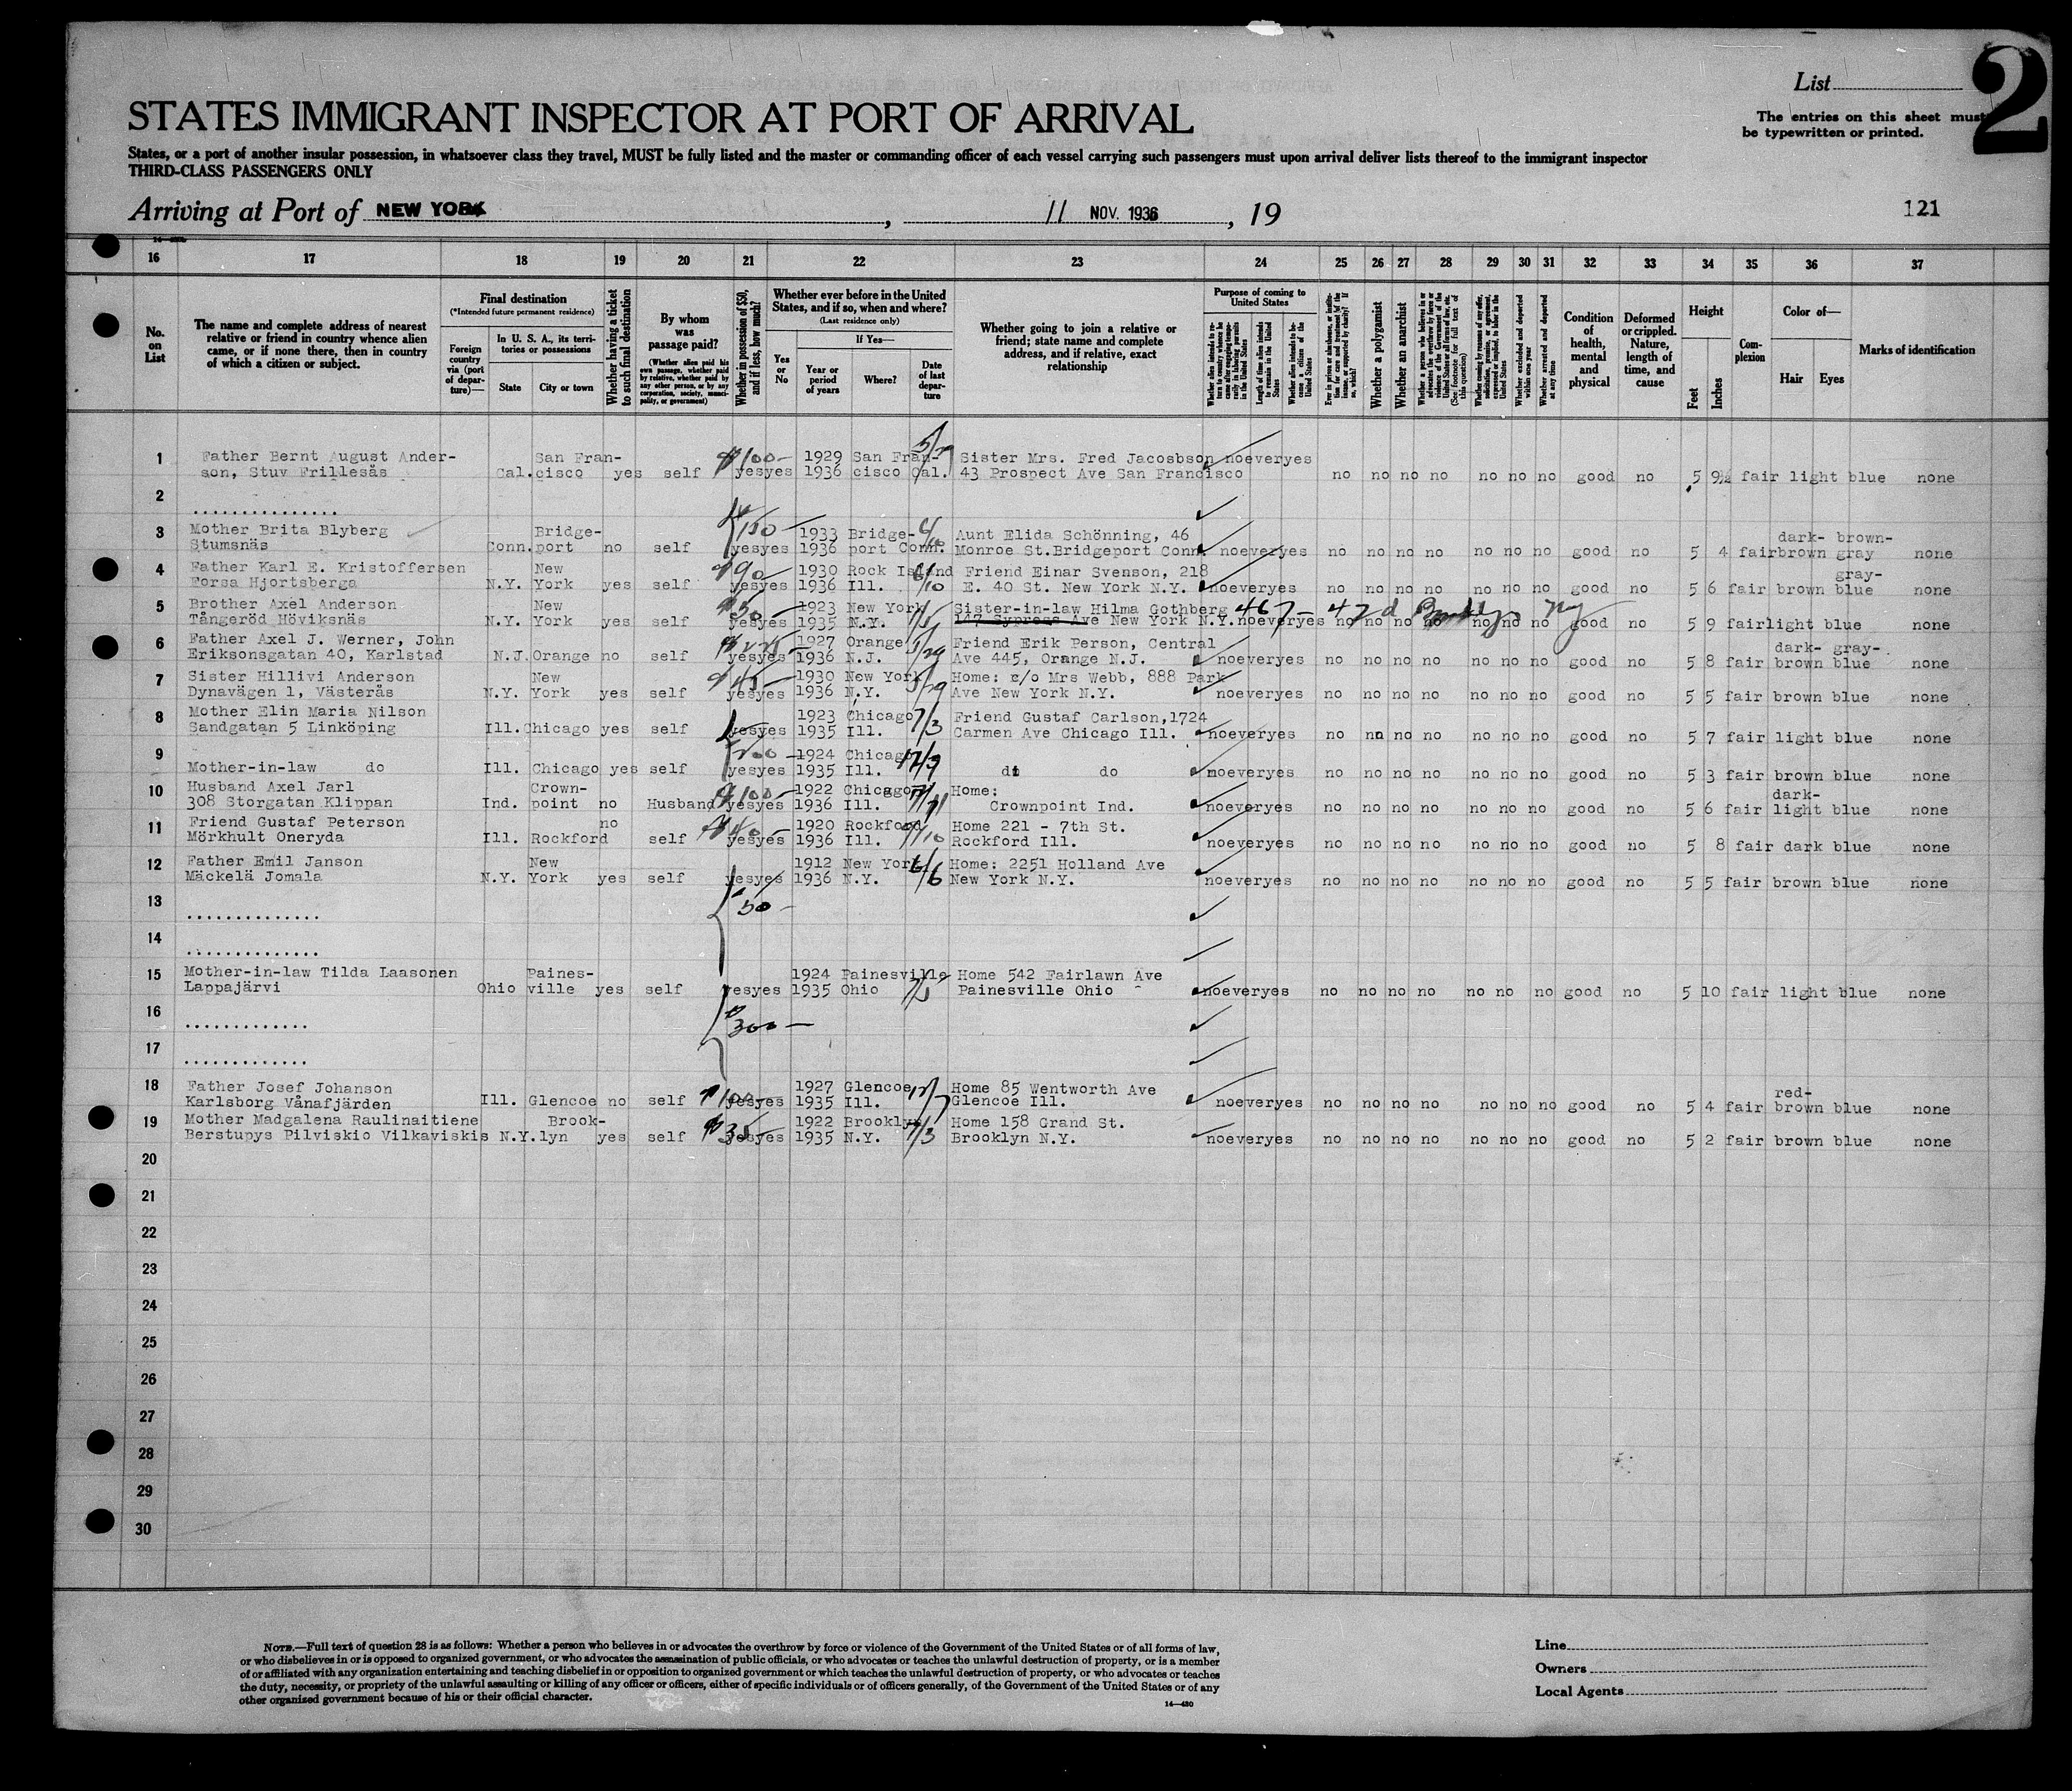 List
2
The entries on this sheet must
be typewritten or printed.
STATES IMMIGRANT INSPECTOR AT PORT OF ARRIVAL
States, or a port of another insular possession, in whatsoever class they travel, MUST be fully listed and the master or commanding officer of each vessel carrying such passengers must upon arrival deliver lists thereof to the immigrant inspector
THIRD-CLASS PASSENGERS ONLY
Arriving at Port of NEW YORK, 11 NOV. 1936, 19
121
16 17 18 19 20 21 22 23 24 25 26 27 28 29 30 31 32 33 34 35 36 37
No. on List
The name and complete address of nearest relative or friend in country whence alien came, or if none there, then in country of which a citizen or subject.
Final destination
(*Intended future permanent residence)
Foreign country via (port of departure)—
In U. S. A., its territories or possessions
State
City or town
Whether having a ticket to such final destination
By whom was passage paid?
(Whether alien paid his own passage, whether paid by relative, whether paid by any other person, or by any corporation, society, municipality, or government)
Whether in possession of $50, and if less, how much?
Whether ever before in the United States, and if so, when and where?
(Last residence only)
Yes or No
If Yes—
Year or period of years
Where?
Date of last departure
Whether going to join a relative or friend; state name and complete address, and if relative, exact relationship
Purpose of coming to United States
Whether alien intends to return to country whence he came after engaging temporarily in laboring pursuits in the United States
Length of time alien intends to remain in the United States
Whether alien intends to become a citizen of the United States
Ever in prison or almshouse, or institution for care and treatment of the insane, or supported by charity? If so, which?
Whether a polygamist
Whether an anarchist
(See footnote for full text of this question)
Whether coming by reason of any offer, solicitation, promise, or agreement, expressed or implied, to labor in the United States
Whether excluded and deported within one year
Whether arrested and deported at any time
Condition of health, mental and physical
Deformed or crippled. Nature, length of time, and cause
Height
Feet
Inches
Complexion
Color of—
Hair
Eyes
Marks of identification
1 Father Bernt August Ander- San Fran- $100- 1929 San Fran- 5/29 Sister Mrs. Fred Jacosbson noeveryes
son, Stuv Frillesås Cal. cisco yes self yesyes 1936 cisco Cal. 43 Prospect Ave San Francisco no no no no no no no good no 5 9½ fair light blue none
2 ...............
3 Mother Brita Blyberg Bridge- 150 1933 Bridge- Aunt Elida Schönning, 46 dark- brown-
Stumsnäs Conn. port no self yesyes 1936 port Conn. Monroe St.Bridgeport Conn. noeveryes no no no no no no no good no 5 4 fair brown gray none
4 Father Karl E. Kristoffersen New $90 1930 Rock Island Friend Einar Svenson, 218 gray-
Forsa Hjortsberga N.Y. York yes self yesyes 1936 Ill. E. 40 St. New York N.Y. noeveryes no no no no no no no good no 5 6 fair brown blue none
5 Brother Axel Anderson New $50 1923 New York Sister-in-law Hilma Gothberg 467 - 47d Brooklyn Ny
Tångeröd Höviksnäs N.Y. York yes self yesyes 1935 N.Y. 147 Sypress Ave New York N.Y. noeveryes no no no no no no no good no 5 9 fair light blue none
6 Father Axel J. Werner, John 1927 Orange 5/29 Friend Erik Person, Central dark- gray-
Eriksonsgatan 40, Karlstad N.J. Orange no self yesyes 1936 N.J. Ave 445, Orange N.J. noeveryes no no no no no no no good no 5 8 fair brown blue none
7 Sister Hillivi Anderson New $45 1930 New York 5/29 Home: c/o Mrs Webb, 888 Park
Dynavägen 1, Västerås N.Y. York yes self yesyes 1936 N.Y. Ave New York N.Y. noeveryes no no no no no no no good no 5 5 fair brown blue none
8 Mother Elin Maria Nilson 1923 Chicago 7/3 Friend Gustaf Carlson,1724
Sandgatan 5 Linköping Ill. Chicago yes self yesyes 1935 Ill. Carmen Ave Chicago Ill. noeveryes no nn no no no no no good no 5 7 fair light blue none
9 200 1924 Chicago
Mother-in-law do Ill. Chicago yes self yesyes 1935 Ill. do do noeveryes no no no no no no no good no 5 3 fair brown blue none
10 Husband Axel Jarl Crown- $100 1922 Chicago Home: dark-
308 Storgatan Klippan Ind. point no Husband yesyes 1936 Ill. Crownpoint Ind. noeveryes no no no no no no no good no 5 6 fair light blue none
11 Friend Gustaf Peterson no $40 1920 Rockford Home 221 - 7th St.
Mörkhult Oneryda Ill. Rockford self yesyes 1936 Ill. Rockford Ill. noeveryes no no no no no no no good no 5 8 fair dark blue none
12 Father Emil Janson New 1912 New York 6/6 Home: 2251 Holland Ave
Mäckelä Jomala N.Y. York yes self yesyes 1936 N.Y. New York N.Y. noeveryes no no no no no no no good no 5 5 fair brown blue none
13 .............. 50 -
14 ..............
15 Mother-in-law Tilda Laasonen Paines- 1924 Painesville Home 542 Fairlawn Ave
Lappajärvi Ohio ville yes self yesyes 1935 Ohio Painesville Ohio noeveryes no no no no no no no good no 5 10 fair light blue none
16 ............. $300 —
17 .............
18 Father Josef Johanson 1927 Glencoe 12/7 Home 85 Wentworth Ave red-
Karlsborg Vånafjärden Ill. Glencoe no self $100 yesyes 1935 Ill. Glencoe Ill. noeveryes no no no no no no no good no 5 4 fair brown blue none
19 Mother Madgalena Raulinaitiene Brook- 1922 Brooklyn 7/3 Home 158 Grand St.
Berstupys Pilviskio Vilkaviskis N.Y. lyn yes self $35 yesyes 1935 N.Y. Brooklyn N.Y. noeveryes no no no no no no no good no 5 2 fair brown blue none
20
21
22
23
24
25
26
27
28
29
30
NOTE.—Full text of question 28 is as follows: Whether a person who believes in or advocates the overthrow by force or violence of the Government of the United States or of all forms of law,
or who disbelieves in or is opposed to organized government, or who advocates the assassination of public officials, or who advocates or teaches the unlawful destruction of property, or is a member
of or affiliated with any organization entertaining and teaching disbelief in or opposition to organized government or which teaches the unlawful destruction of property, or who advocates or teaches
the duty, necessity, or propriety of the unlawful assaulting or killing of any officer or officers, either of specific individuals or of officers generally, of the Government of the United States or of any
other organized government because of his or their official character.
14—430
Line
Owners
Local Agents